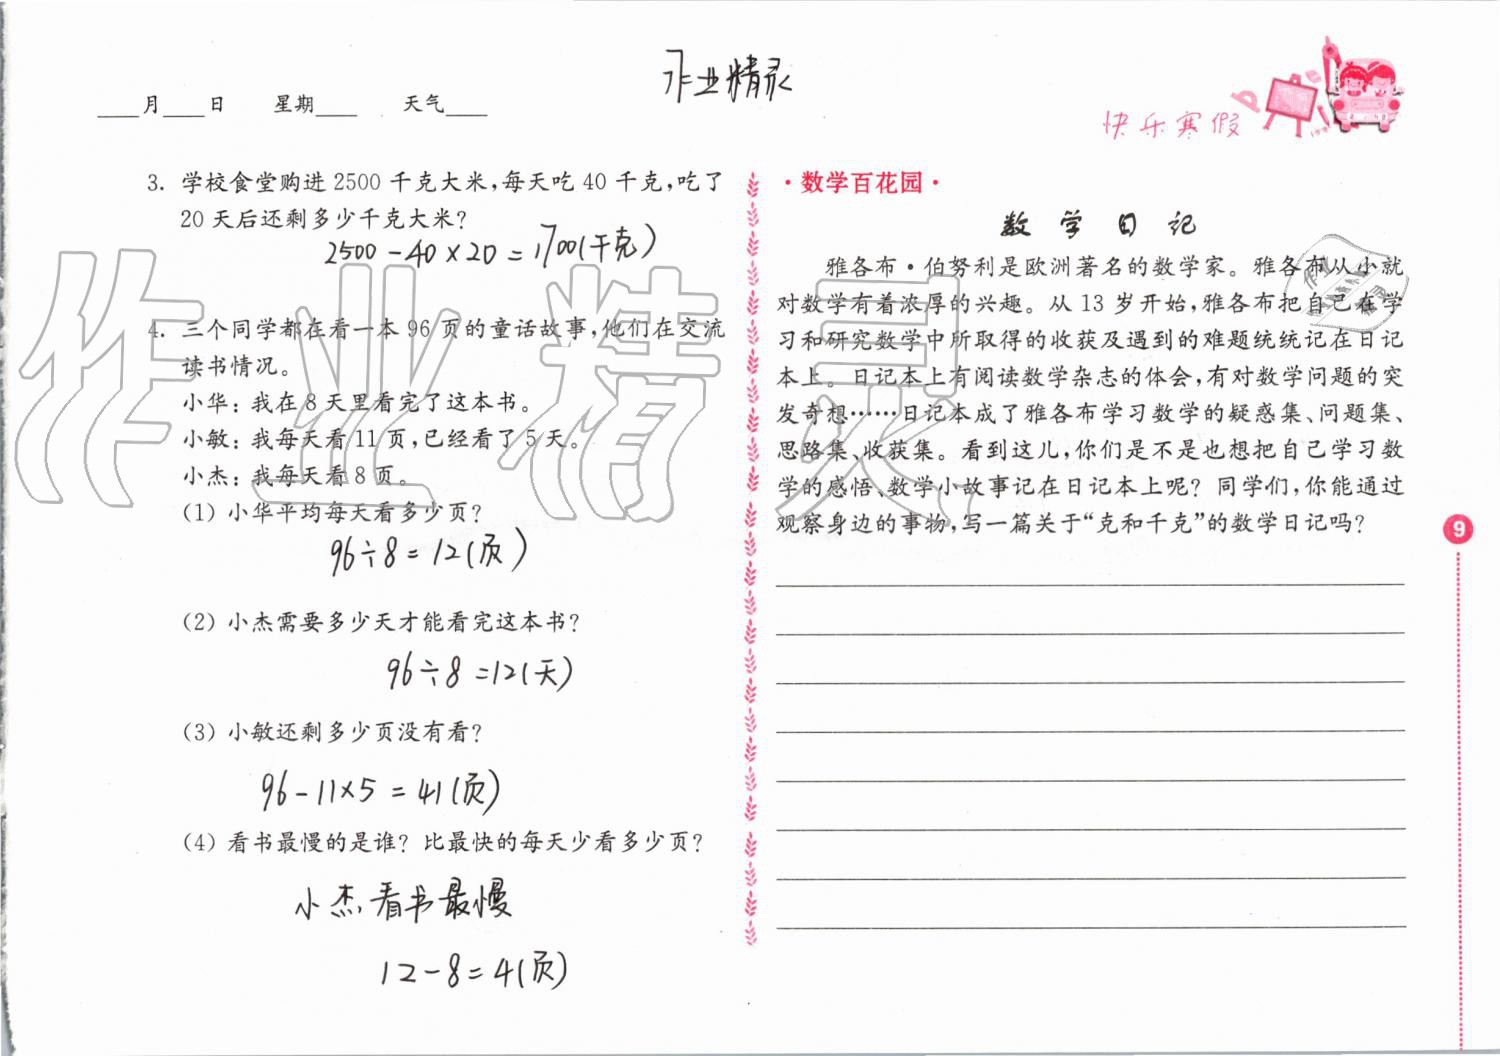 ____月____日 星期____ 天气____
作业精灵
快乐寒假
3. 学校食堂购进 2500 千克大米,每天吃 40 千克,吃了
20 天后还剩多少千克大米?
2500-40×20=1700(千克)
4. 三个同学都在看一本 96 页的童话故事,他们在交流
读书情况。
小华:我在 8 天里看完了这本书。
小敏:我每天看 11 页,已经看了 5 天。
小杰:我每天看 8 页。
(1) 小华平均每天看多少页?
96÷8=12(页)
(2) 小杰需要多少天才能看完这本书?
96÷8=12(天)
(3) 小敏还剩多少页没有看?
96-11×5=41(页)
(4) 看书最慢的是谁? 比最快的每天少看多少页?
小杰看书最慢
12-8=4(页)
·数学百花园·
数学日记
雅各布·伯努利是欧洲著名的数学家。雅各布从小就
对数学有着浓厚的兴趣。从 13 岁开始,雅各布把自己在学
习和研究数学中所取得的收获及遇到的难题统统记在日记
本上。日记本上有阅读数学杂志的体会,有对数学问题的突
发奇想……日记本成了雅各布学习数学的疑惑集、问题集、
思路集、收获集。看到这儿,你们是不是也想把自己学习数
学的感悟、数学小故事记在日记本上呢? 同学们,你能通过
观察身边的事物,写一篇关于“克和千克”的数学日记吗?
9
作业精灵